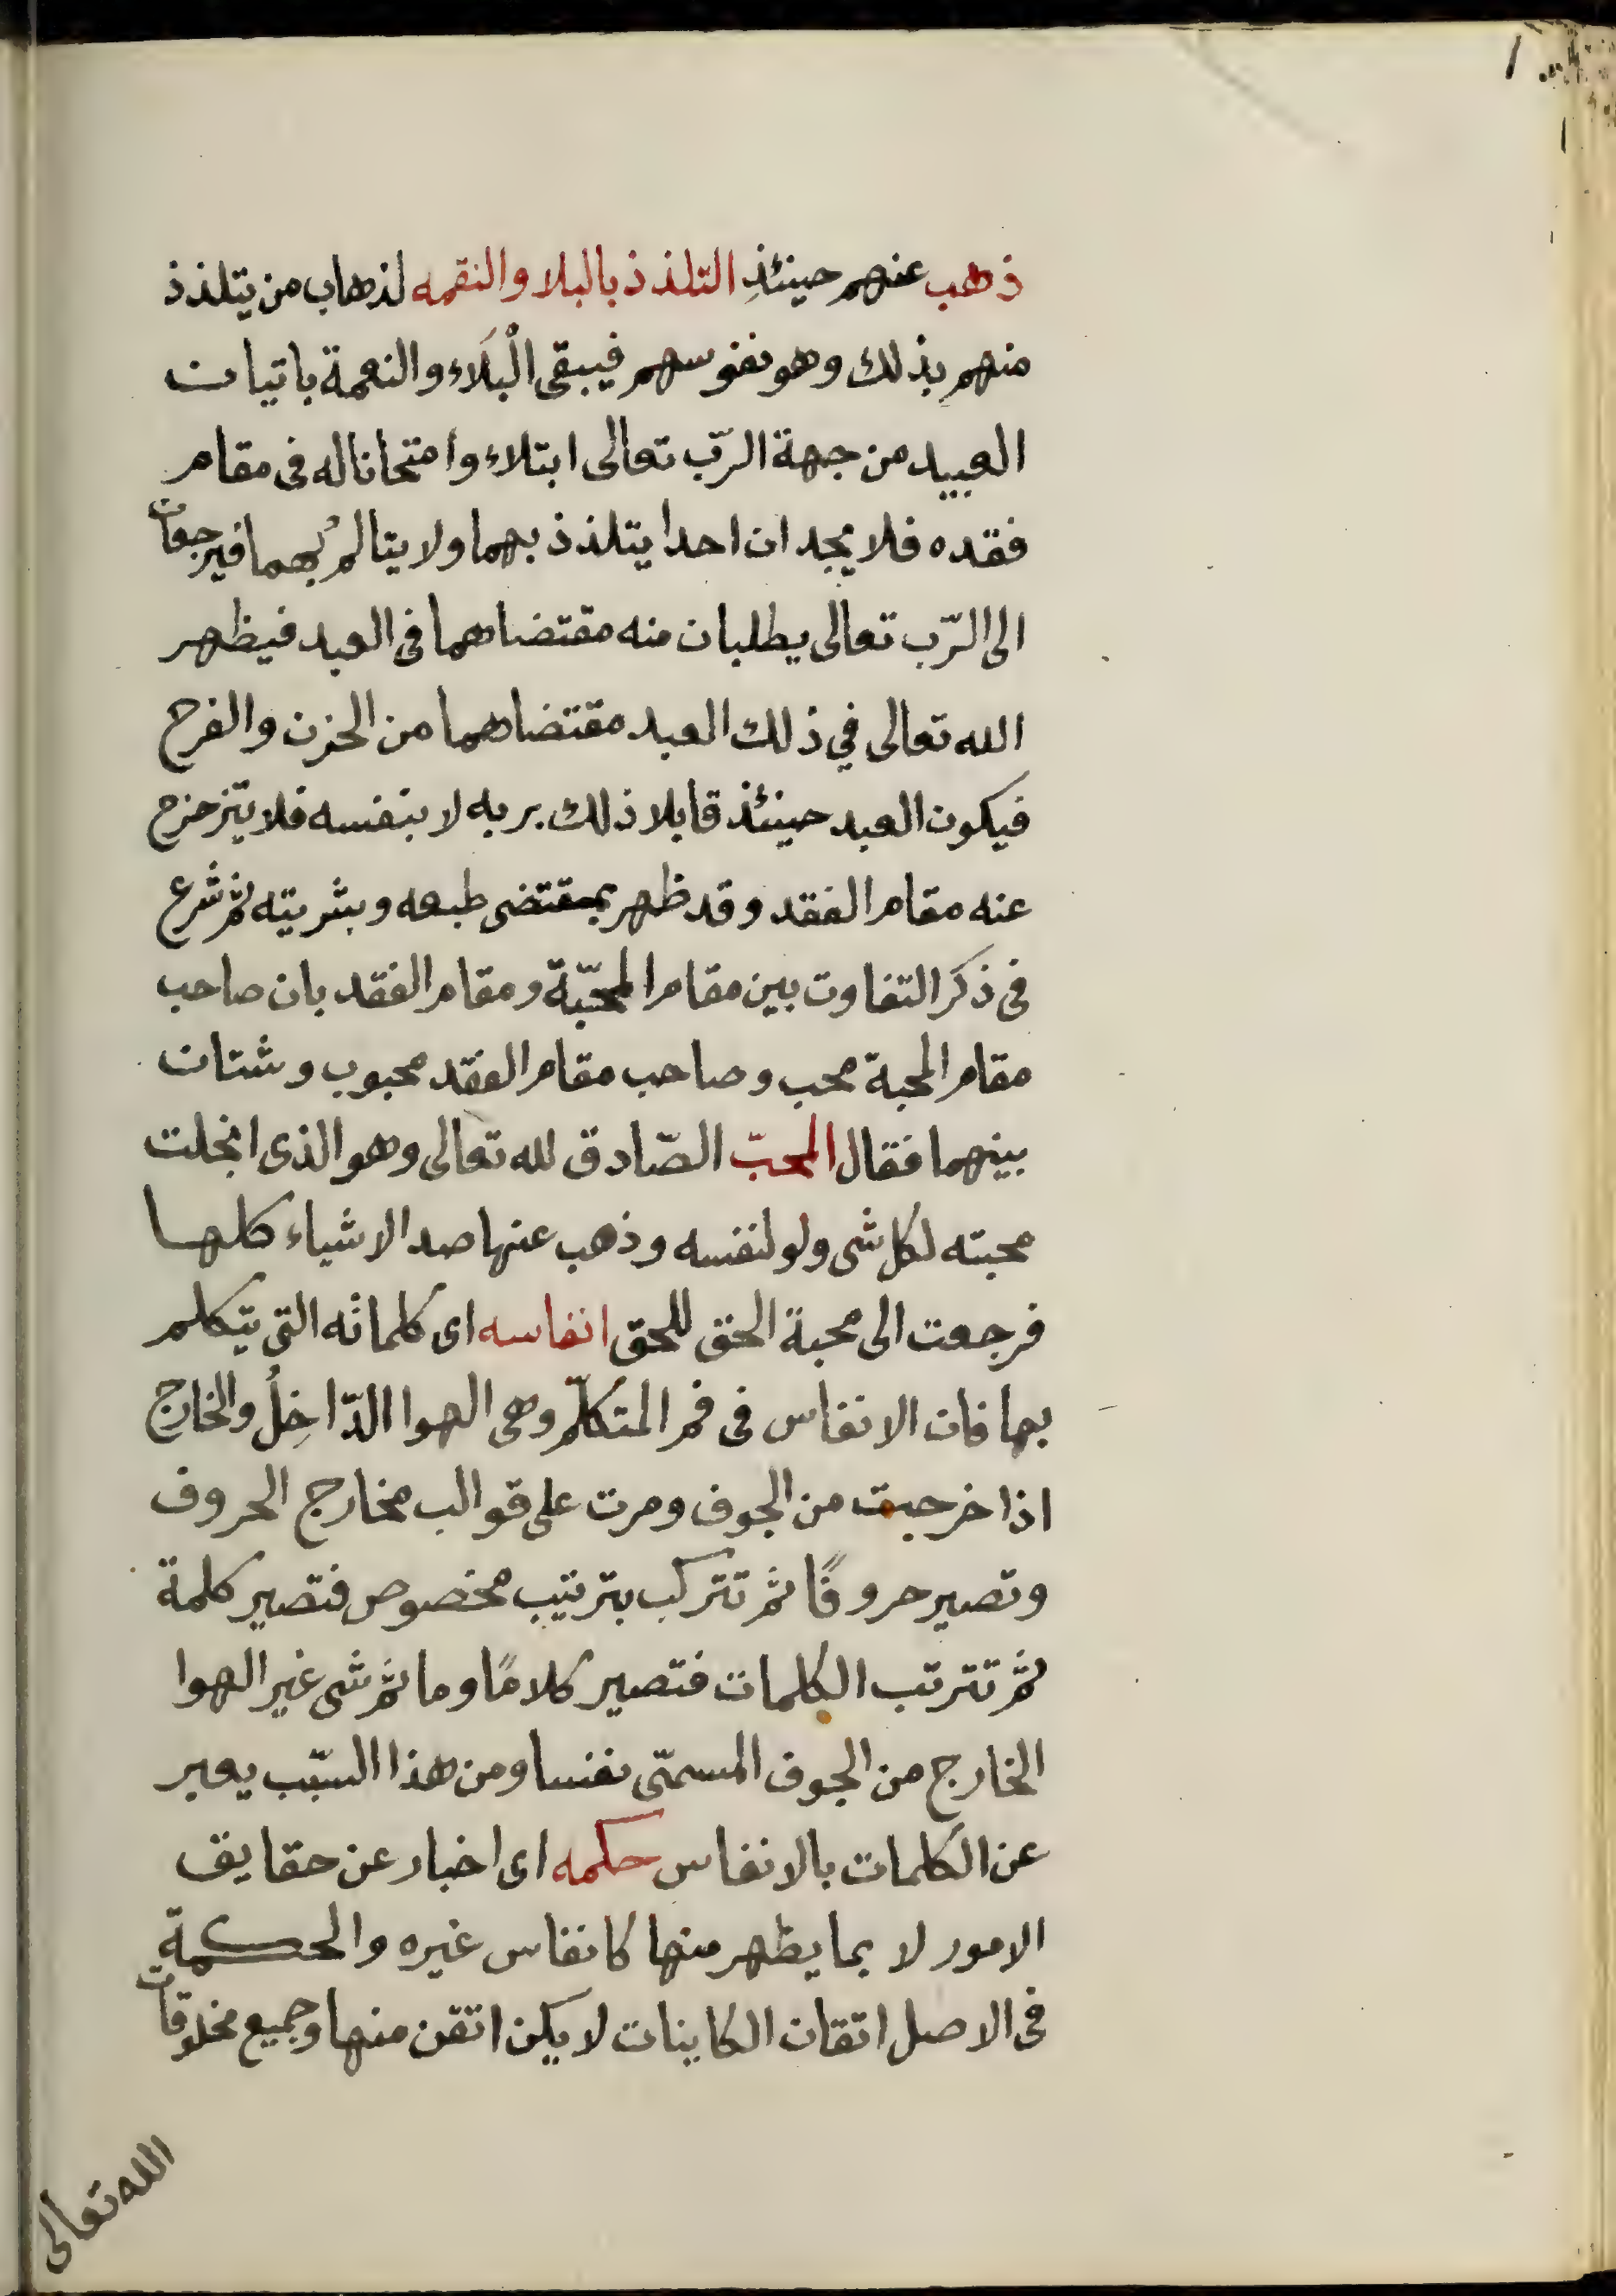 ذهب عنهم حينئذٍ التلذذ بالبلا والنقمه لذهاب من يتلذذ
منهم بذلك وهو نفوسهم فيبقى الْبَلَاء والنعمة ياتيان
العبيد من جهة الرّب تعالى ابتلاء وامتحانا له فى مقام
فقده فلا يجدان احدا يتلذذ بهما ولا يتالم بهما فيرجعان
الى الرّب تعالى يطلبان منه مقتضاهما فى العبد فيظهر
الله تعالى في ذلك العبد مقتضاهما من الحزن والفرح
فيكون العبد حينئذ قابلا ذلك بربه لا بنفسه فلا يتزحزح
عنه مقام الفقد وقد ظهر بمقتضى طبعه وبشريته ثم شرع
فى ذكر التفاوت بين مقام المحبّة ومقام الفقد بان صاحب
مقام المحبة محب وصاحب مقام الفقد محبوب وشتان
بينهما فقال المحبّ الصّادق لله تعالى وهو الذى انجلت
محبته لكل شى ولو لنفسه وذهب عنها صد الاشياء كلها
فرجعت الى محبة الحق للحق انفاسه اى كلماته التى يتكلم
بها فان الانفاس فى فم المتكلّم وهى الهوا الدّاخِلُ والخارج
اذا خرجت من الجوف ومرت على قوالب مخارج الحروف
وتصير حروفًا ثم تتركب بترتيب مخصوص فتصير كلمة
ثم تترتب الكلمات فتصير كلامًا وما ثم شى غير الهوا
الخارج من الجوف المسمّى نفسا ومن هذا السّبب يعبر
عن الكلمات بالانفاس حكمه اى اخبار عن حقايق
الامور لا بما يظهر منها كانفاس غيره والحكمة
فى الاصل اتقان الكاينات لا يكن اتقن منها وجميع مخلوقات
الله تعالى